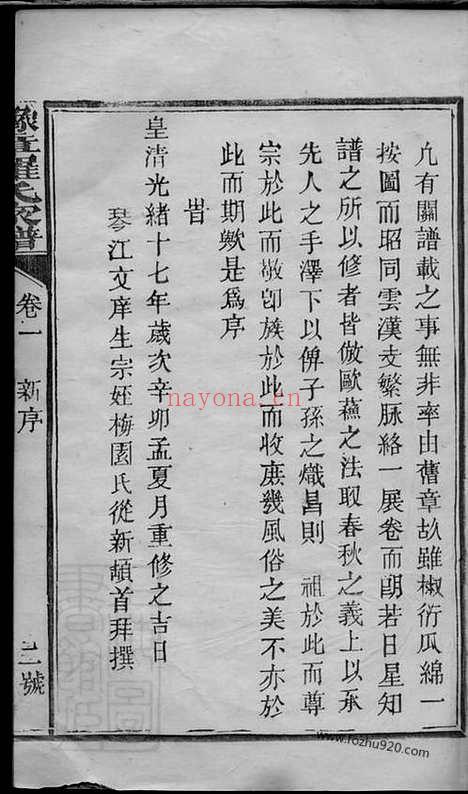 凢有關譜載之事無非率由舊章故雖椒衍瓜綿一
按圖而昭同雲漢支繁脉絡一展卷而朗若日星知
譜之所以修者皆倣歐蘇之法取春秋之義上以承
先人之手澤下以俾子孫之熾昌則 祖於此而尊
宗於此而敬卽族於此而收庶幾風俗之美不亦於
此而期歟是爲序
旹
皇清光緒十七年歲次辛卯孟夏月重修之吉日
琴江文庠生宗姪梅園氏從新頓首拜撰
豫章羅氏家譜 卷一 新序 二號
nayona.cn
www.fozhu920.com